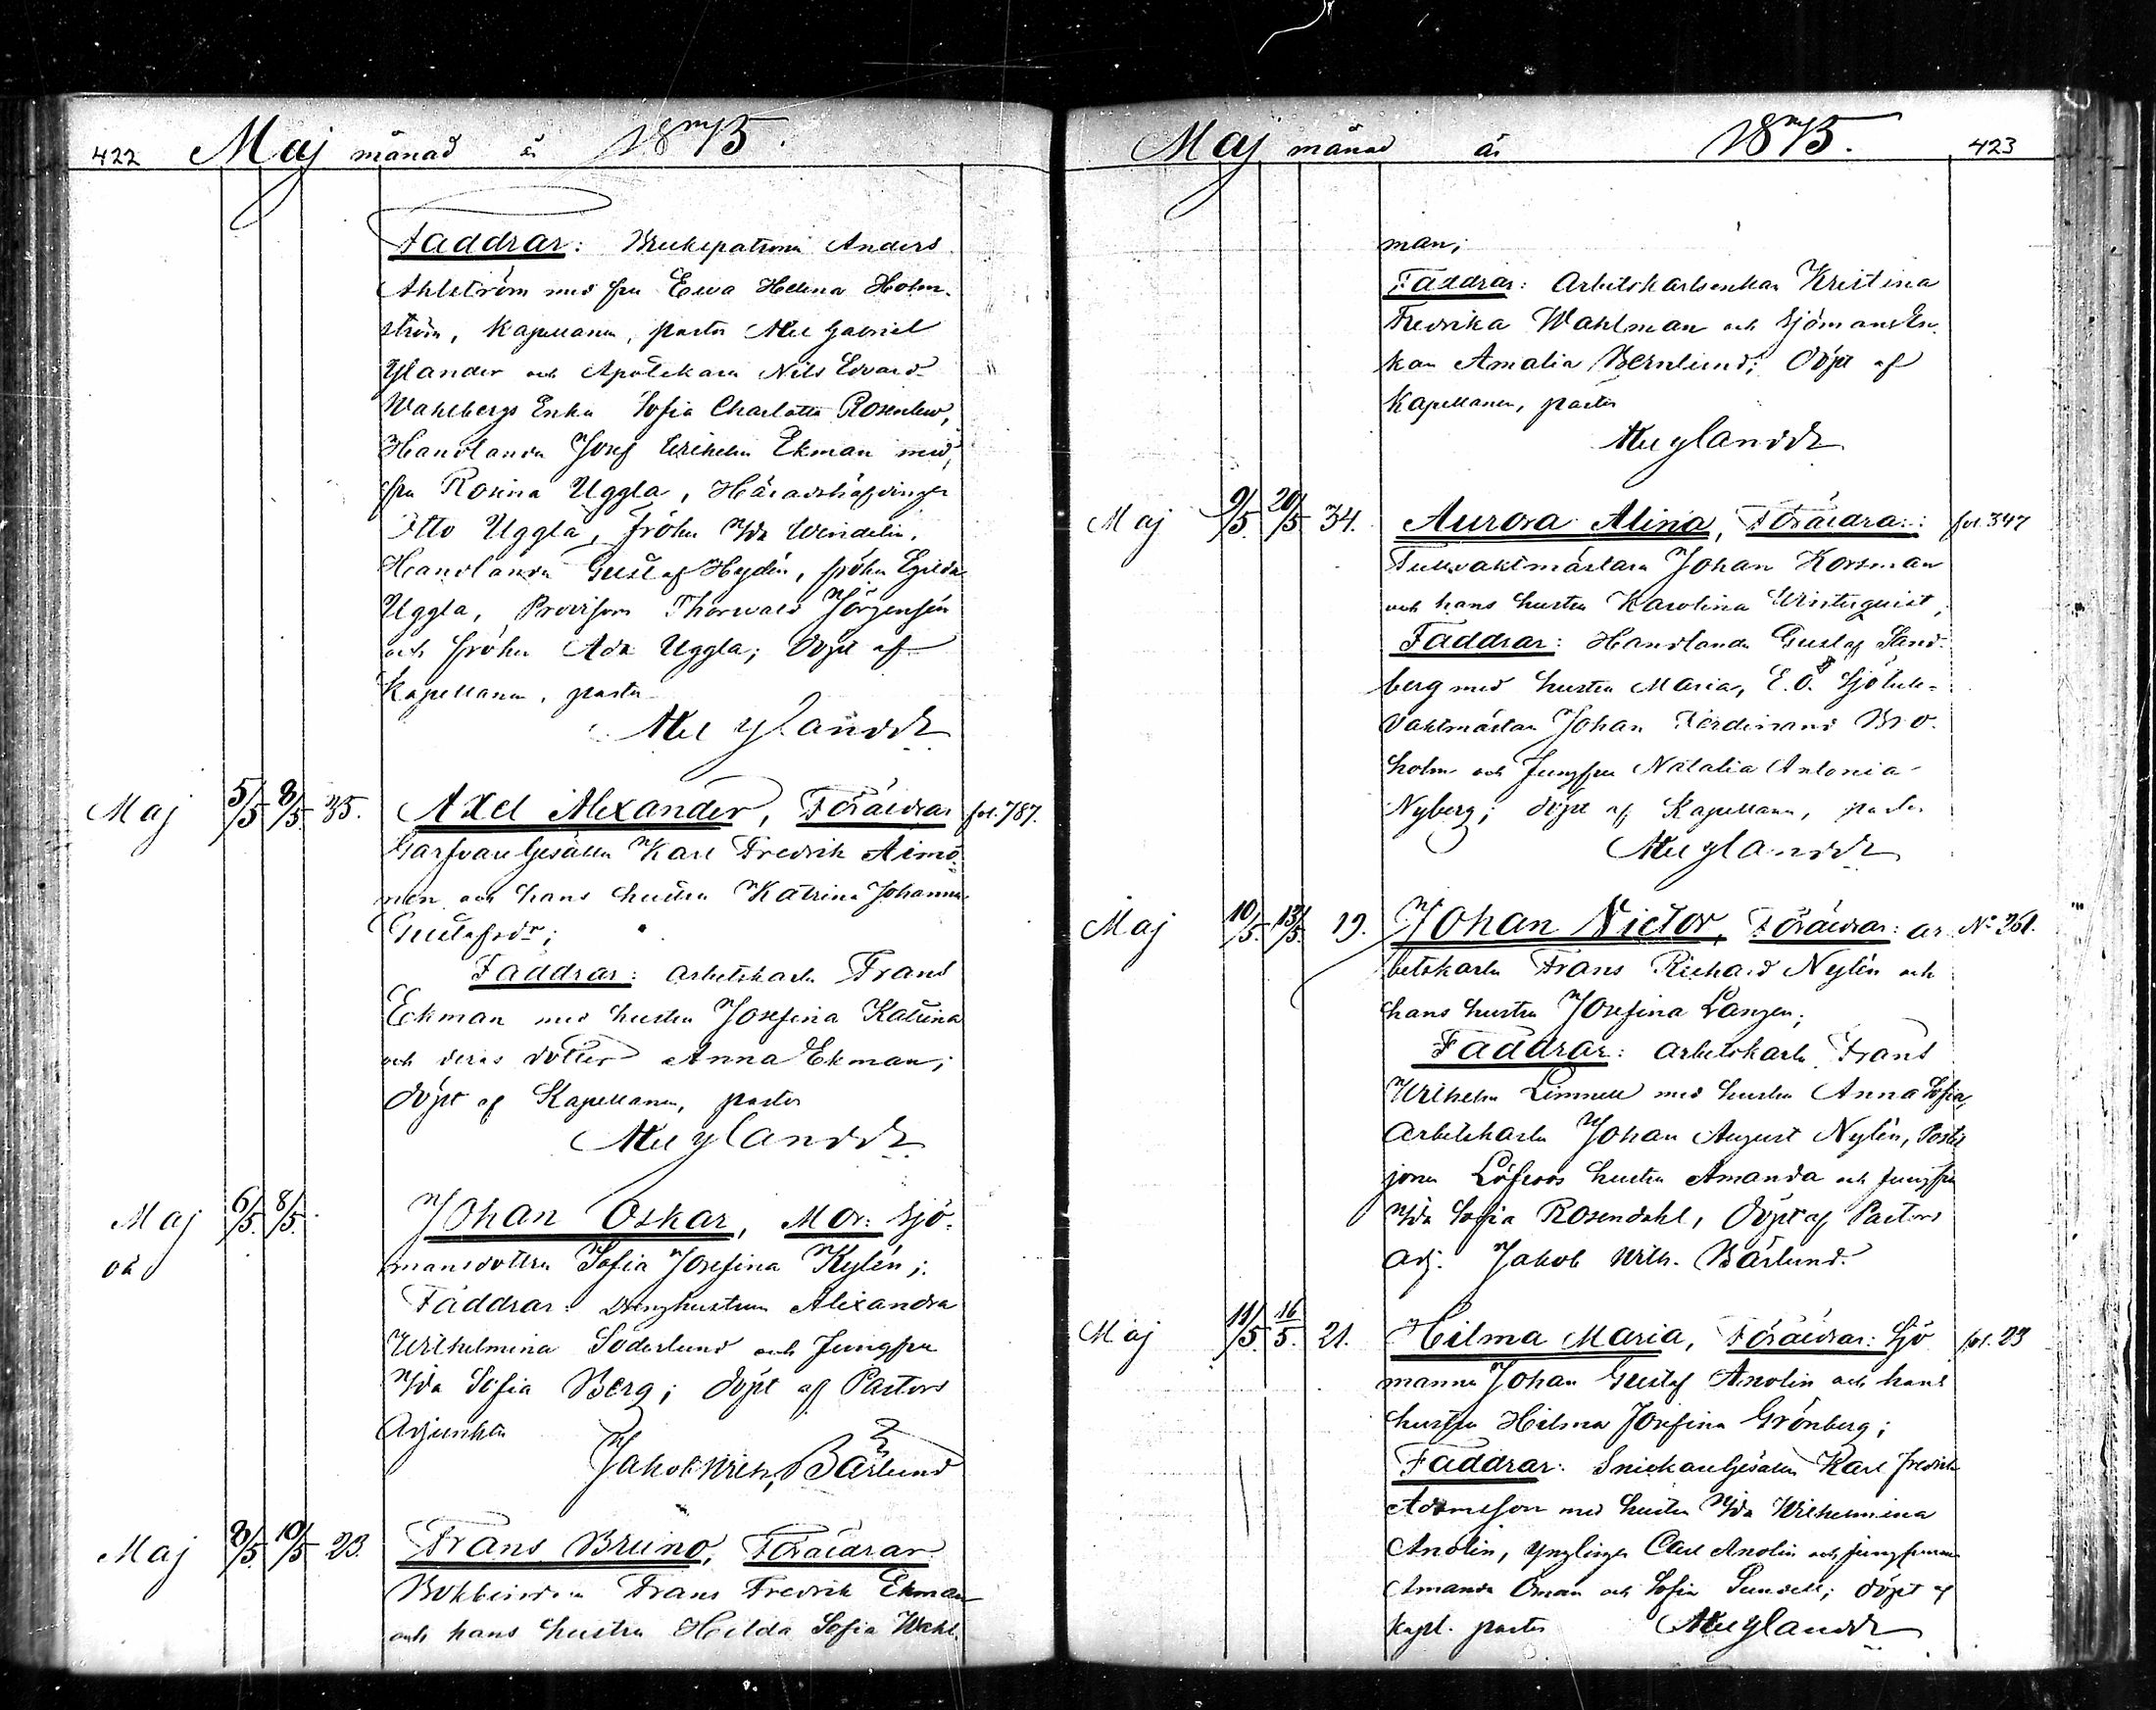 422 Maj månad år 1875.
Faddrar: Brukspatron Anders
Ahlström med fru Ewa Helena Holm-
ström, Kapellanen, pastor Axel Gabriel
Ylander och Apotekarn Nils Edvard
Wahlbergs Enka Sofia Charlotta Rosenlew,
Handlanden Josef Wilhelm Ekman med
fru Rosina Uggla, Häradshöfdingen
Otto Uggla, fröken Ida Wendelin,
Handlanden Gustaf Heydén, fröken
Uggla, Provisorn Thorwald Jörgensén
och fröken Ada Uggla; döpt af
Kapellanen, pastor
Axel Ylander
Maj 5/5 8/5 35. Axel Alexander, Föräldrar fol. 787.
Garfvare Gesällen Karl Fredrik Aimo
nen och hans hustru Katrina Johanna
Gustafsdr;
Faddrar: arbetskarln Frans
Ekman med hustru Josefina Katrina
och deras dotter Anna Ekman;
döpt af Kapellanen, pastor
Axel Ylander
Maj 6/5 8/5. Johan Oskar, Mor: Sjö-
oä mansdottren Sofia Josefina Kylén;
Faddrar: Drenghustrun Alexandra
Wilhelmina Söderlund och Jungfru
Ida Sofia Berg; döpt af Pastors
Adjunkten
Jakob Wilh. Bärlund
Maj 8/5 10/5 23. Frans Bruno, Föräldrar
Bokbindaren Frans Fredrik Ekman
och hans hustru Hilda Sofia Wahl-
Maj månad år 1875. 423
man;
Faddrar: Arbetskarlsenkan Kristina
Fredrika Wahlman och Sjömansen
kan Amalia Bernlund; döpt af
Kapellanen, pastor
Axel Ylander
Maj 9/5 20/5 34. Aurora Alina, Föräldrar: fol. 347
Tullvaktmästarn Johan Korsman
och hans hustru Karolina Winterquist,
Faddrar: Handlanden Gustaf Sand-
berg med hustru Maria, E.O. Sjötull-
vaktmästarn Johan Ferdinand Bro-
holm och Jungfru Natalia Antonia
Nyberg; döpt af Kapellanen, pastor
Axel Ylander
Maj 10/5 13/5 19. Johan Victor, Föräldrar: ar No 261.
betskarln Frans Richard Nylén och
hans hustru Josefina Langen;
Faddrar: arbetskarln Frans
Wilhelm Limnell med hustru Anna Sofia,
Arbetskarln Johan August Nylén, Postil
jonen Löfroos hustru Amanda och Jungfru
Ida Sofia Rosendahl, döpt af Pastors
Adj. Jakob Wilh. Bärlund.
Maj 11/5 16/5. 21. Hilma Maria, Föräldrar: Sjö fol. 23
mannen Johan Gustaf Anolin och hans
hustru Hilma Josefina Grönberg;
Faddrar: Snickare Gesällen Karl Fredrik
Adamsson med hustru Ida Wilhelmina
Anolin, ynglingen Carl Anolin och jungfrurna
Amanda Öman och Sofia Sundell; döpt af
Kapl. pastor Axel Ylander